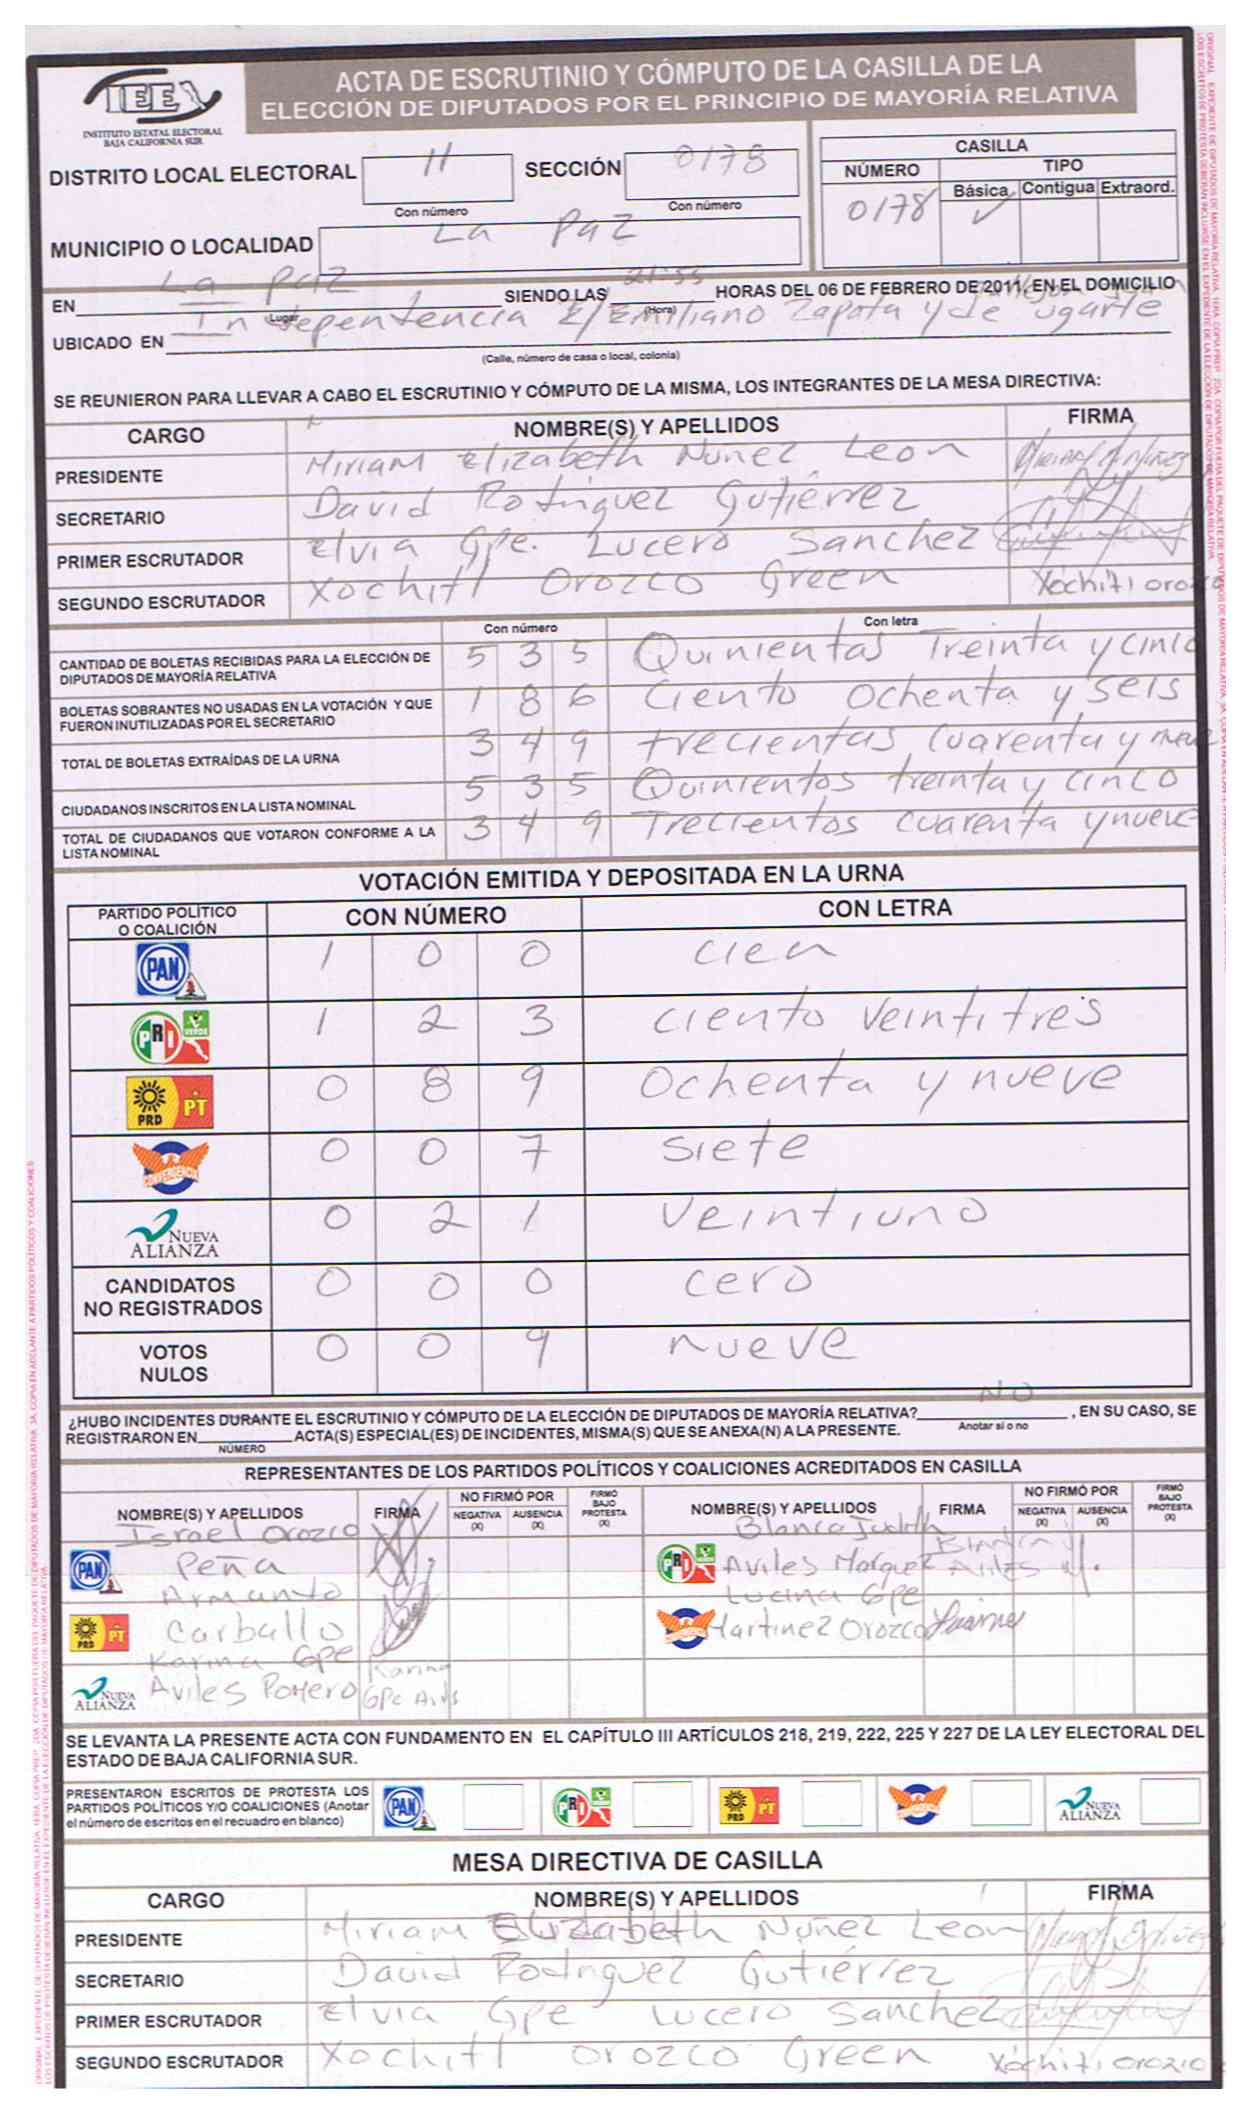 IEE
INSTITUTO ESTATAL ELECTORAL
BAJA CALIFORNIA SUR
ACTA DE ESCRUTINIO Y CÓMPUTO DE LA CASILLA DE LA
ELECCIÓN DE DIPUTADOS POR EL PRINCIPIO DE MAYORÍA RELATIVA
DISTRITO LOCAL ELECTORAL 11 SECCIÓN 0178
Con número Con número
CASILLA
NÚMERO TIPO
Básica Contigua Extraord.
0178 ✓
MUNICIPIO O LOCALIDAD La Paz
EN La Paz SIENDO LAS 21:55 HORAS DEL 06 DE FEBRERO DE 2011, EN EL DOMICILIO
Lugar (Hora)
UBICADO EN Independencia E/Emiliano Zapata y de ugarte
(Calle, número de casa o local, colonia)
SE REUNIERON PARA LLEVAR A CABO EL ESCRUTINIO Y CÓMPUTO DE LA MISMA, LOS INTEGRANTES DE LA MESA DIRECTIVA:
CARGO NOMBRE(S) Y APELLIDOS FIRMA
PRESIDENTE Miriam Elizabeth Nuñez Leon
SECRETARIO David Rodriguez Gutiérrez
PRIMER ESCRUTADOR Elvia Gpe. Lucero Sanchez
SEGUNDO ESCRUTADOR Xochitl Orozco Green Xóchitl orozco
Con número Con letra
CANTIDAD DE BOLETAS RECIBIDAS PARA LA ELECCIÓN DE DIPUTADOS DE MAYORÍA RELATIVA 5 3 5 Quinientas Treinta y cinco
BOLETAS SOBRANTES NO USADAS EN LA VOTACIÓN Y QUE FUERON INUTILIZADAS POR EL SECRETARIO 1 8 6 Ciento ochenta y seis
TOTAL DE BOLETAS EXTRAÍDAS DE LA URNA 3 4 9 trecientas cuarenta y nueve
CIUDADANOS INSCRITOS EN LA LISTA NOMINAL 5 3 5 Quinientos treinta y cinco
TOTAL DE CIUDADANOS QUE VOTARON CONFORME A LA LISTA NOMINAL 3 4 9 Trecientos cuarenta y nueve
VOTACIÓN EMITIDA Y DEPOSITADA EN LA URNA
PARTIDO POLÍTICO O COALICIÓN CON NÚMERO CON LETRA
PAN 1 0 0 cien
PRI VERDE 1 2 3 ciento veintitres
PRD PT 0 8 9 ochenta y nueve
CONVERGENCIA 0 0 7 siete
NUEVA ALIANZA 0 2 1 veintiuno
CANDIDATOS NO REGISTRADOS 0 0 0 cero
VOTOS NULOS 0 0 9 nueve
¿HUBO INCIDENTES DURANTE EL ESCRUTINIO Y CÓMPUTO DE LA ELECCIÓN DE DIPUTADOS DE MAYORÍA RELATIVA? NO , EN SU CASO, SE
Anotar si o no
REGISTRARON EN ACTA(S) ESPECIAL(ES) DE INCIDENTES, MISMA(S) QUE SE ANEXA(N) A LA PRESENTE.
NÚMERO
REPRESENTANTES DE LOS PARTIDOS POLÍTICOS Y COALICIONES ACREDITADOS EN CASILLA
NOMBRE(S) Y APELLIDOS FIRMA NO FIRMÓ POR NEGATIVA (X) AUSENCIA (X) FIRMÓ BAJO PROTESTA (X) NOMBRE(S) Y APELLIDOS FIRMA NO FIRMÓ POR NEGATIVA (X) AUSENCIA (X) FIRMÓ BAJO PROTESTA (X)
PAN Israel Orozco Peña
PRI VERDE Blanca Judith Aviles Marquez
PRD PT Armando Carballo
Lucina Gpe Martinez Orozco
NUEVA ALIANZA Karina Gpe Aviles Romero Karina Gpe
SE LEVANTA LA PRESENTE ACTA CON FUNDAMENTO EN EL CAPÍTULO III ARTÍCULOS 218, 219, 222, 225 Y 227 DE LA LEY ELECTORAL DEL
ESTADO DE BAJA CALIFORNIA SUR.
PRESENTARON ESCRITOS DE PROTESTA LOS
PARTIDOS POLÍTICOS Y/O COALICIONES (Anotar
el número de escritos en el recuadro en blanco)
PAN PRI VERDE PRD PT NUEVA ALIANZA
MESA DIRECTIVA DE CASILLA
CARGO NOMBRE(S) Y APELLIDOS FIRMA
PRESIDENTE Miriam Elizabeth Nuñez Leon
SECRETARIO David Rodriguez Gutiérrez
PRIMER ESCRUTADOR Elvia Gpe Lucero Sanchez
SEGUNDO ESCRUTADOR Xochitl Orozco Green Xóchitl orozco